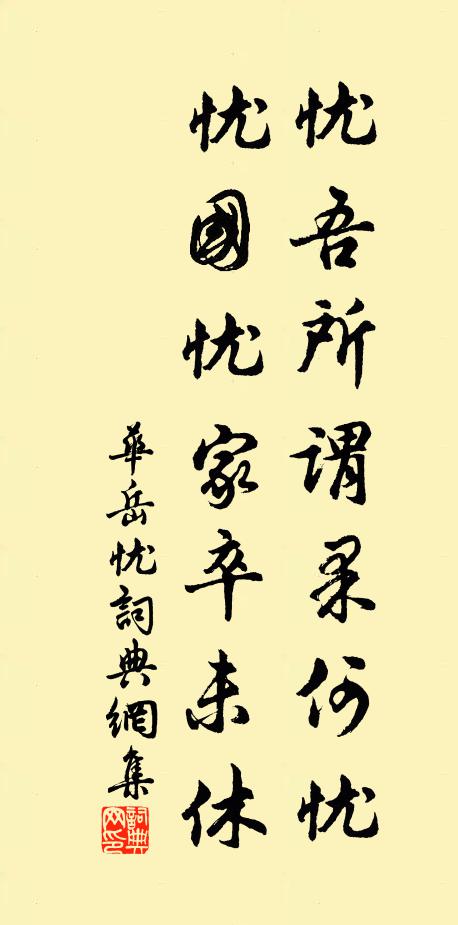 忧吾所谓果何忧
忧國忧家卒未休
華岳忧詞典網集
詞典網印